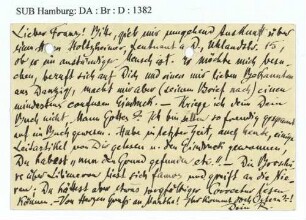 SUB Hamburg: DA : Br : D : 1382
Lieber Franz! Bitte, gieb mir umgehend Auskunft über
einen Holtzheimer, Leutnant a. D., Uhlandstr.
ob er ein anständiger Mensch ist. Er möchte mich besu-
chen, beruft sich auf Dich und einen mir lieben Bekannten
aus Danzig, macht mir aber (seinem Brief nach) einen
mindestens confusen Eindruck. — Kriege ich denn Dein
Buch nicht, Mann Gottes? Ich bin selten so freundig gespannt
auf ein Buch gewesen. Habe in letzter Zeit, auch heute, einige
Leitartikel von Dir gelesen u. den Eindruck gewonnen,
Du habest nun den Grund gefunden etc.!! — Die Broschü-
re über Litimerow liest sich famos und greift an die Nie-
ren; Du hättest aber etwas sorgfältiger Correctur lesen
können. — Von Herzen Gruß an Martha!
Dein